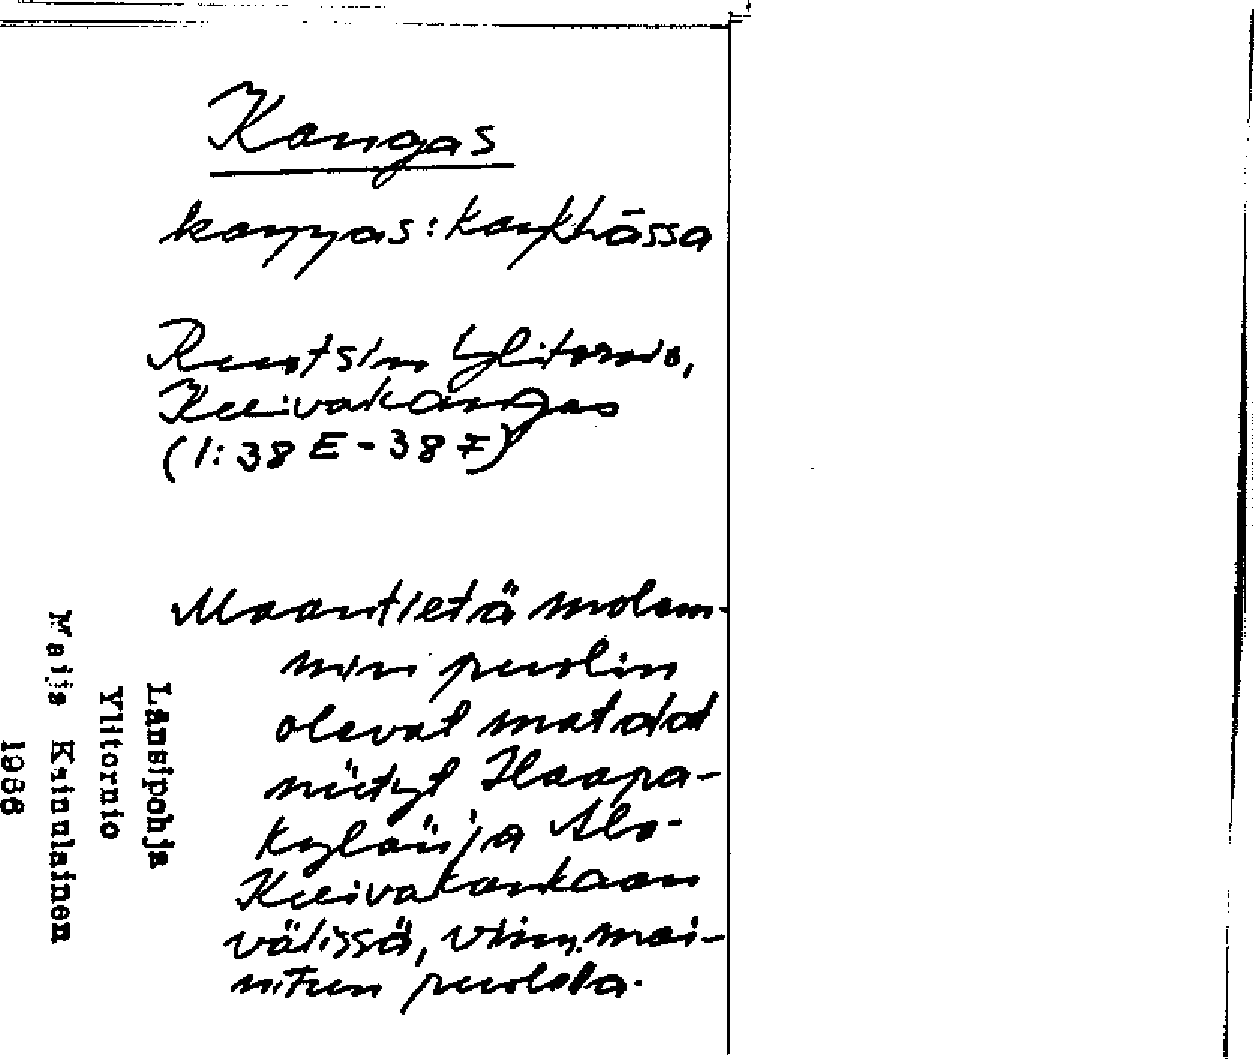 Kangas
kaŋŋas : kaŋkhāssa
Ruotsin Ylitornio,
Kuivakangas
(1:38 E - 38 F)
Maantietä molem-
min puolin
olevat matalat
niityt Haapa-
kylän ja Ala-
Kuivakankaan
välissä, viim. mai-
nitun puolella.
Länsipohja
Ylitornio
Maija Kainulainen
1966